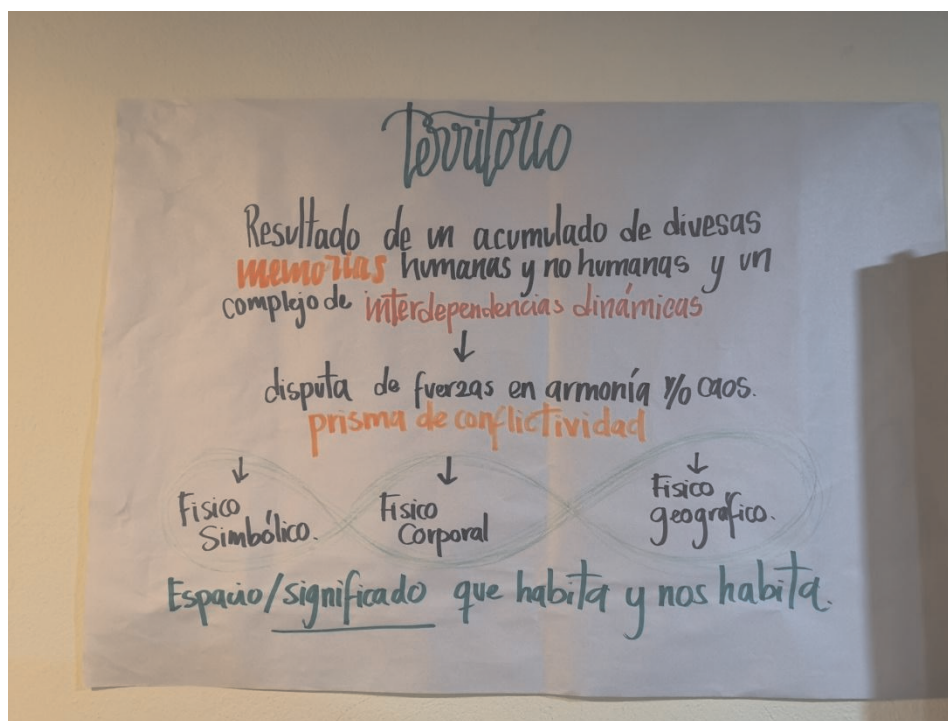 Territorio
Resultado de un acumulado de divesas
memorias humanas y no humanas y un
complejo de interdependencias dinámicas
↓
disputa de fuerzas en armonía y/o caos.
prisma de conflictividad
↓ ↓ ↓
Fisico Fisico Fisico
Simbólico. Corporal geografico.
Espacio/significado que habita y nos habita.